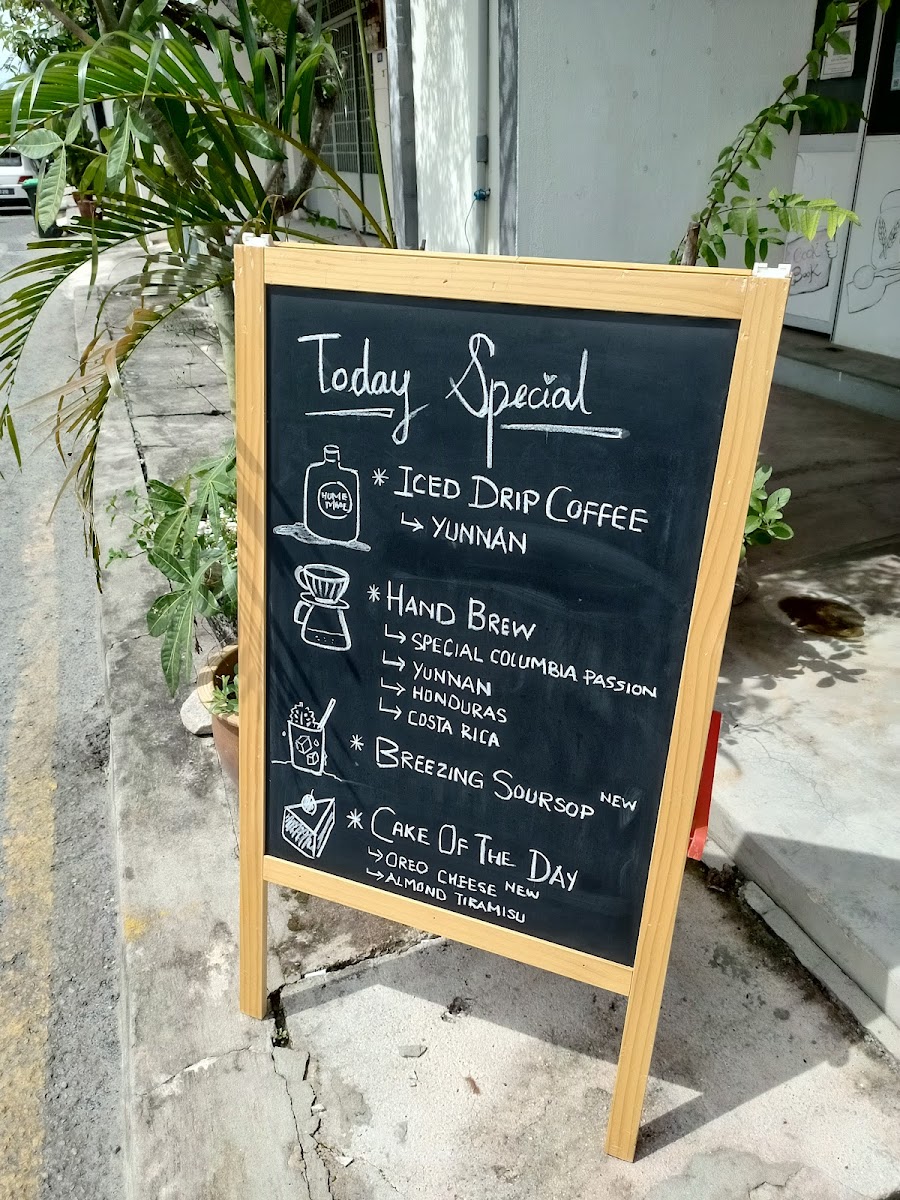 Today Special
HOME
MADE
* ICED DRIP COFFEE
↳ YUNNAN
* HAND BREW
↳ SPECIAL COLUMBIA PASSION
↳ YUNNAN
↳ HONDURAS
↳ COSTA RICA
* BREEZING SOURSOP NEW
* CAKE OF THE DAY
↳ OREO CHEESE NEW
↳ ALMOND TIRAMISU
Book